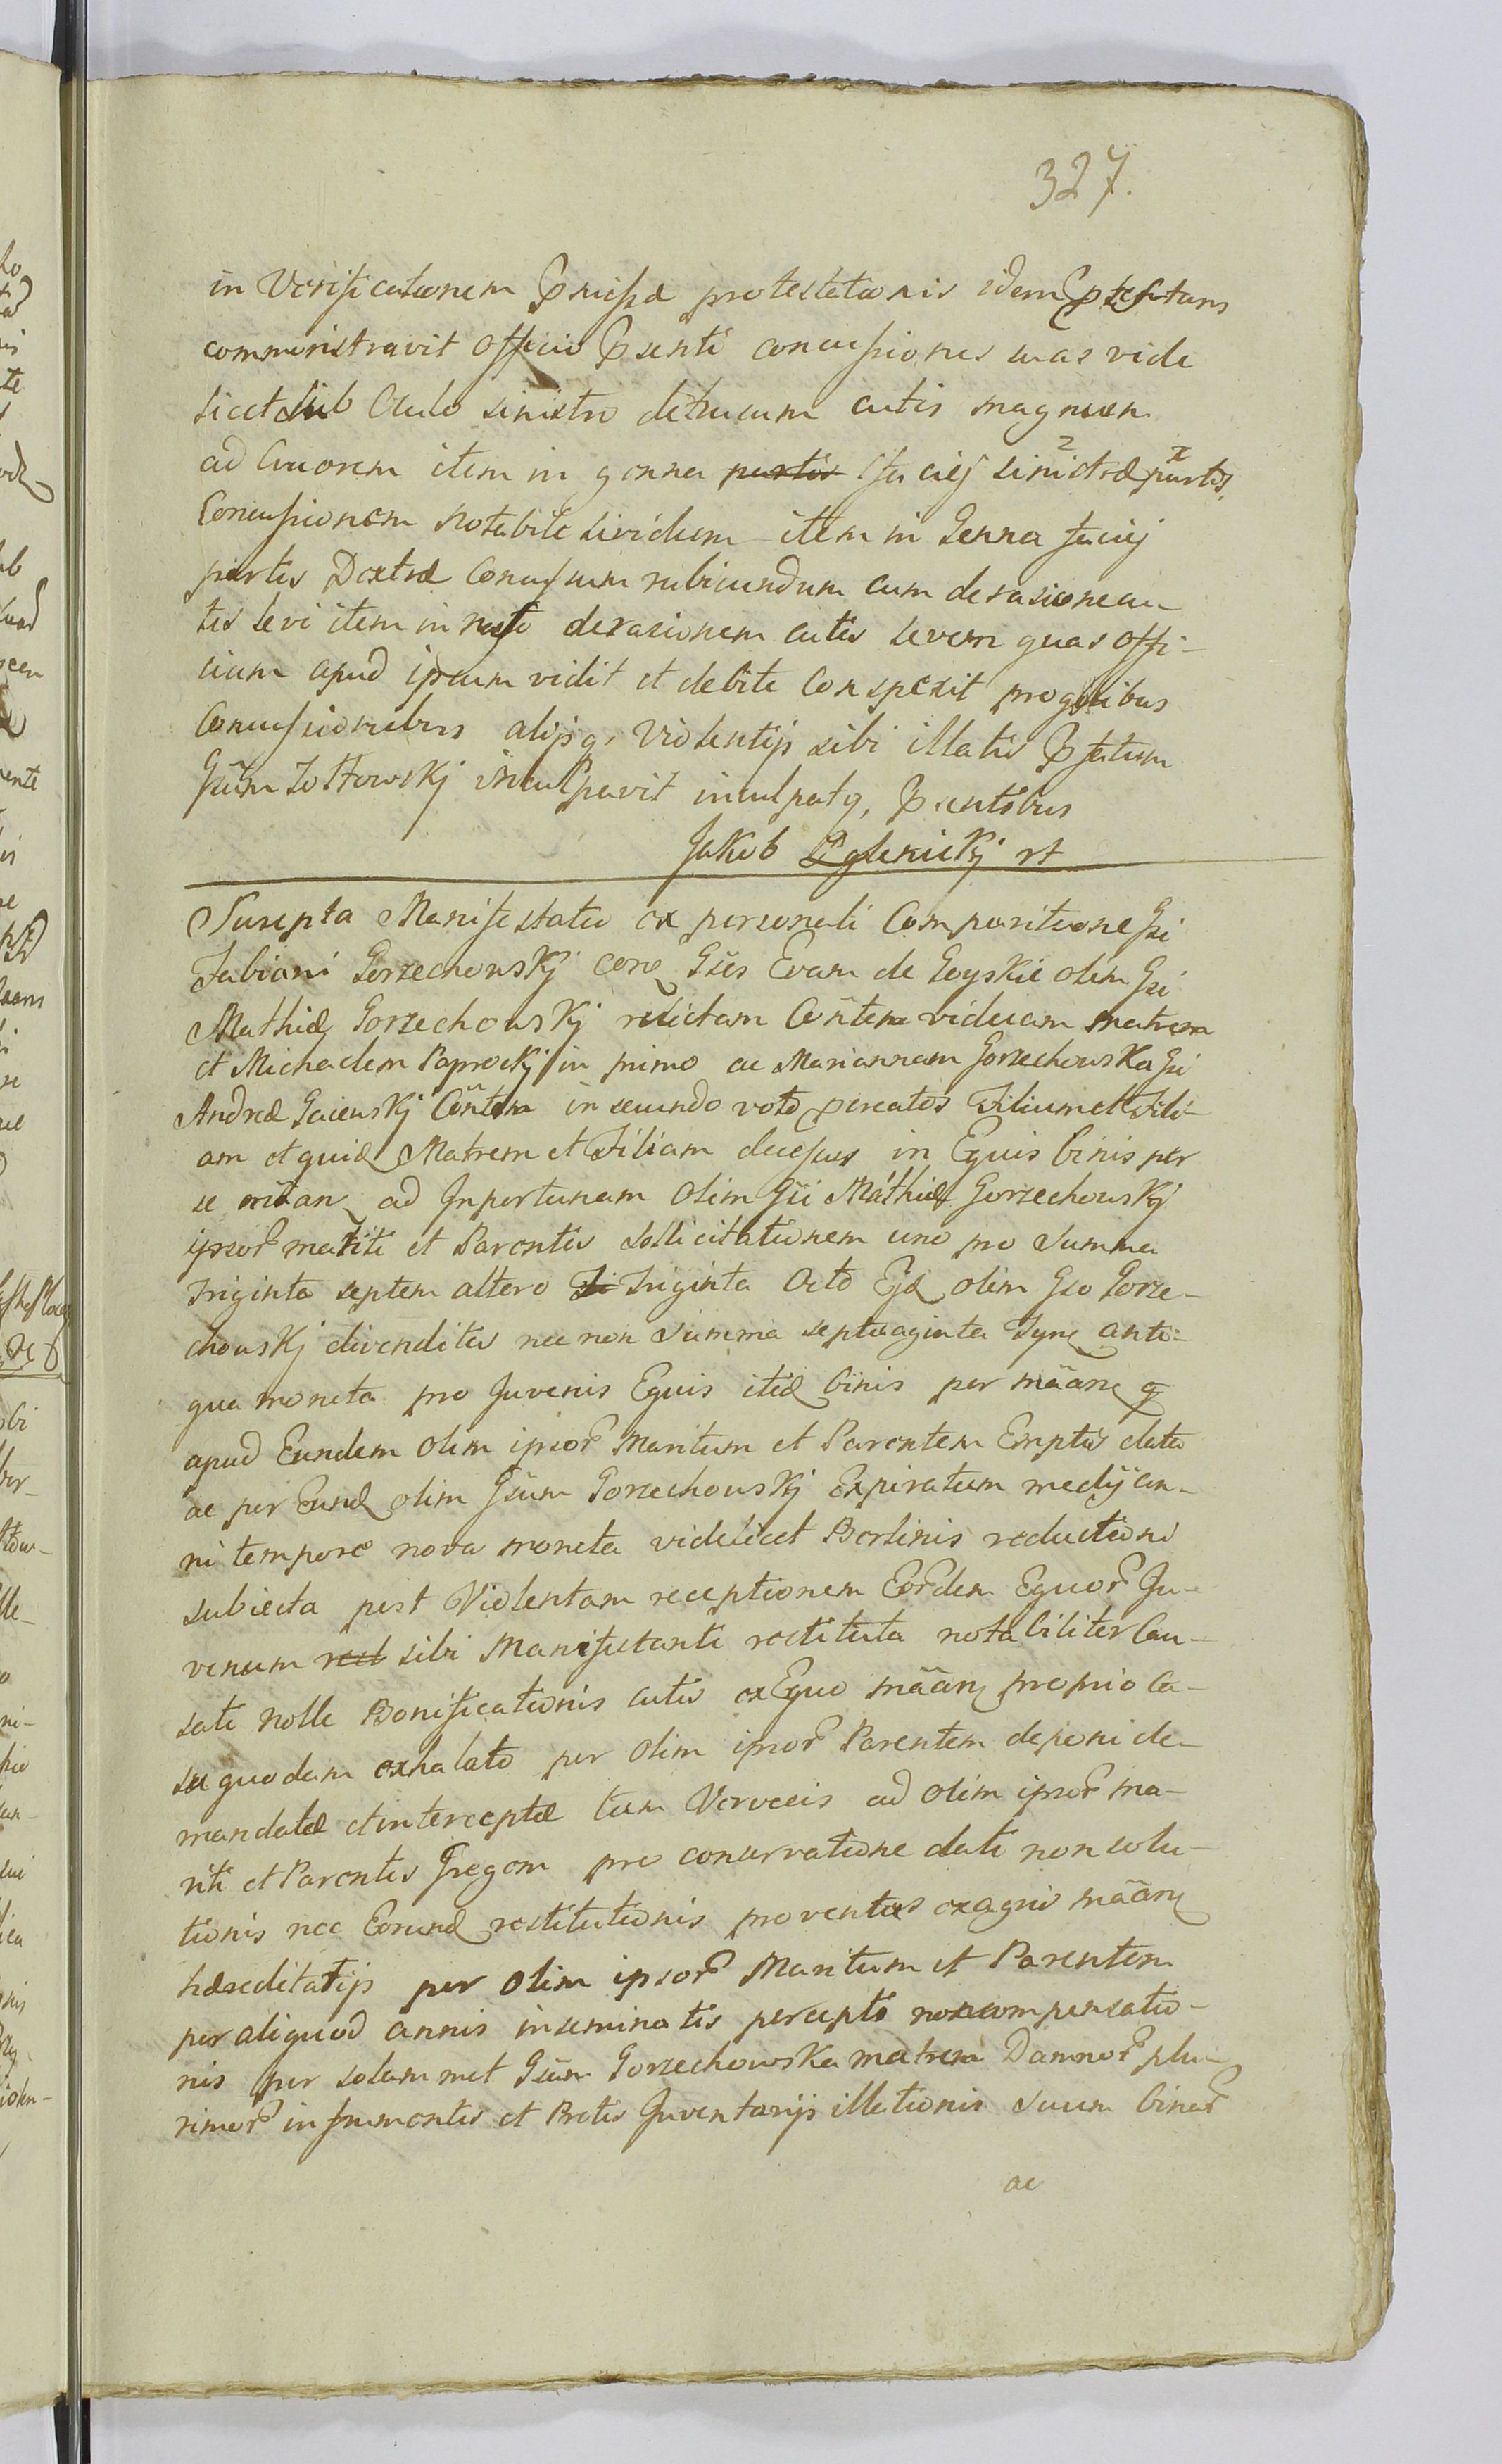 327.
in Verificationem Pmissæ protestationis idem Ptestans
commonstravit officio Psenti concussiones suas vide
licet sub Oculo sinistro detrusum cutis magnum
ad Cruorem item in genna partis faciej sinistræ partis
Concussionem notabile lividum item in Genna faciej
partis Dextræ Concussum rubicundum cum derasione cu-
tis levi item in naso derasionem cutis levem quas offi-
cium apud ipsum vidit et debite Conspexit pro quibus
Concussionibus alijsq, Violentijs sibi illatis Pfatum
Gsum Zołtowskj inculpavit inculpatq, Psentibus
Jakob Zglenickj
Suscepta Manifestatio ex personali Comparitione Gsi
Fabiani Gorzechowskj Gsas Evam de Goyskie olim Gsi
Mathiæ Gorzechowskj relictam viduam matrem
et Michaelem Paprockj in primo ac Mariannam Gorzechowska Gsi
Andreæ in secundo voto pcreatos Filium et Fili-
am et quid Matrem et Filiam in Equis binis per
se ad Inportunam olim Gsi Mathiæ Gorzechowskj
ipsor mariti et Parentis sollicitationem uno pro summa
Triginta septem altero Ti Triginta Octo olim Gso Gorze-
chowskj divenditis nec non summa septuaginta Tynf anti-
qua moneta pro Juvenis Equis itid binis per
apud Eundem olim ipsor Maritum et Parentem Emptis data
ac per Eund olim Gsum Gorzechowskj Expiratum medij an-
ni tempore nova moneta videlicet Berlinis reductioni
subiecta post Violentam receptionem Eordem Equor Ju-
venum rest sibi Manifestanti restituta notabiliter Cau-
sati nolle Bonificationis cutis ex Equo proprio ca-
su quodam exhalato per olim ipsor Parentem deponi de-
mandatæ et interceptæ tum Vervecis ad olim ipsor ma-
riti et Parentis Gregem pro conservatione dati non solu-
tionis nec Eorund restitutionis proventus ex agris
hæreditatijs per olim ipsor Maritum et Parentem
per aliquod annis inseminatis percepti non compensatio-
nis per solummet Gsam Gorzechowska matrem Damnor plu-
rimor in frumentis et Pratis Inventarijs illationis suum binar
ac